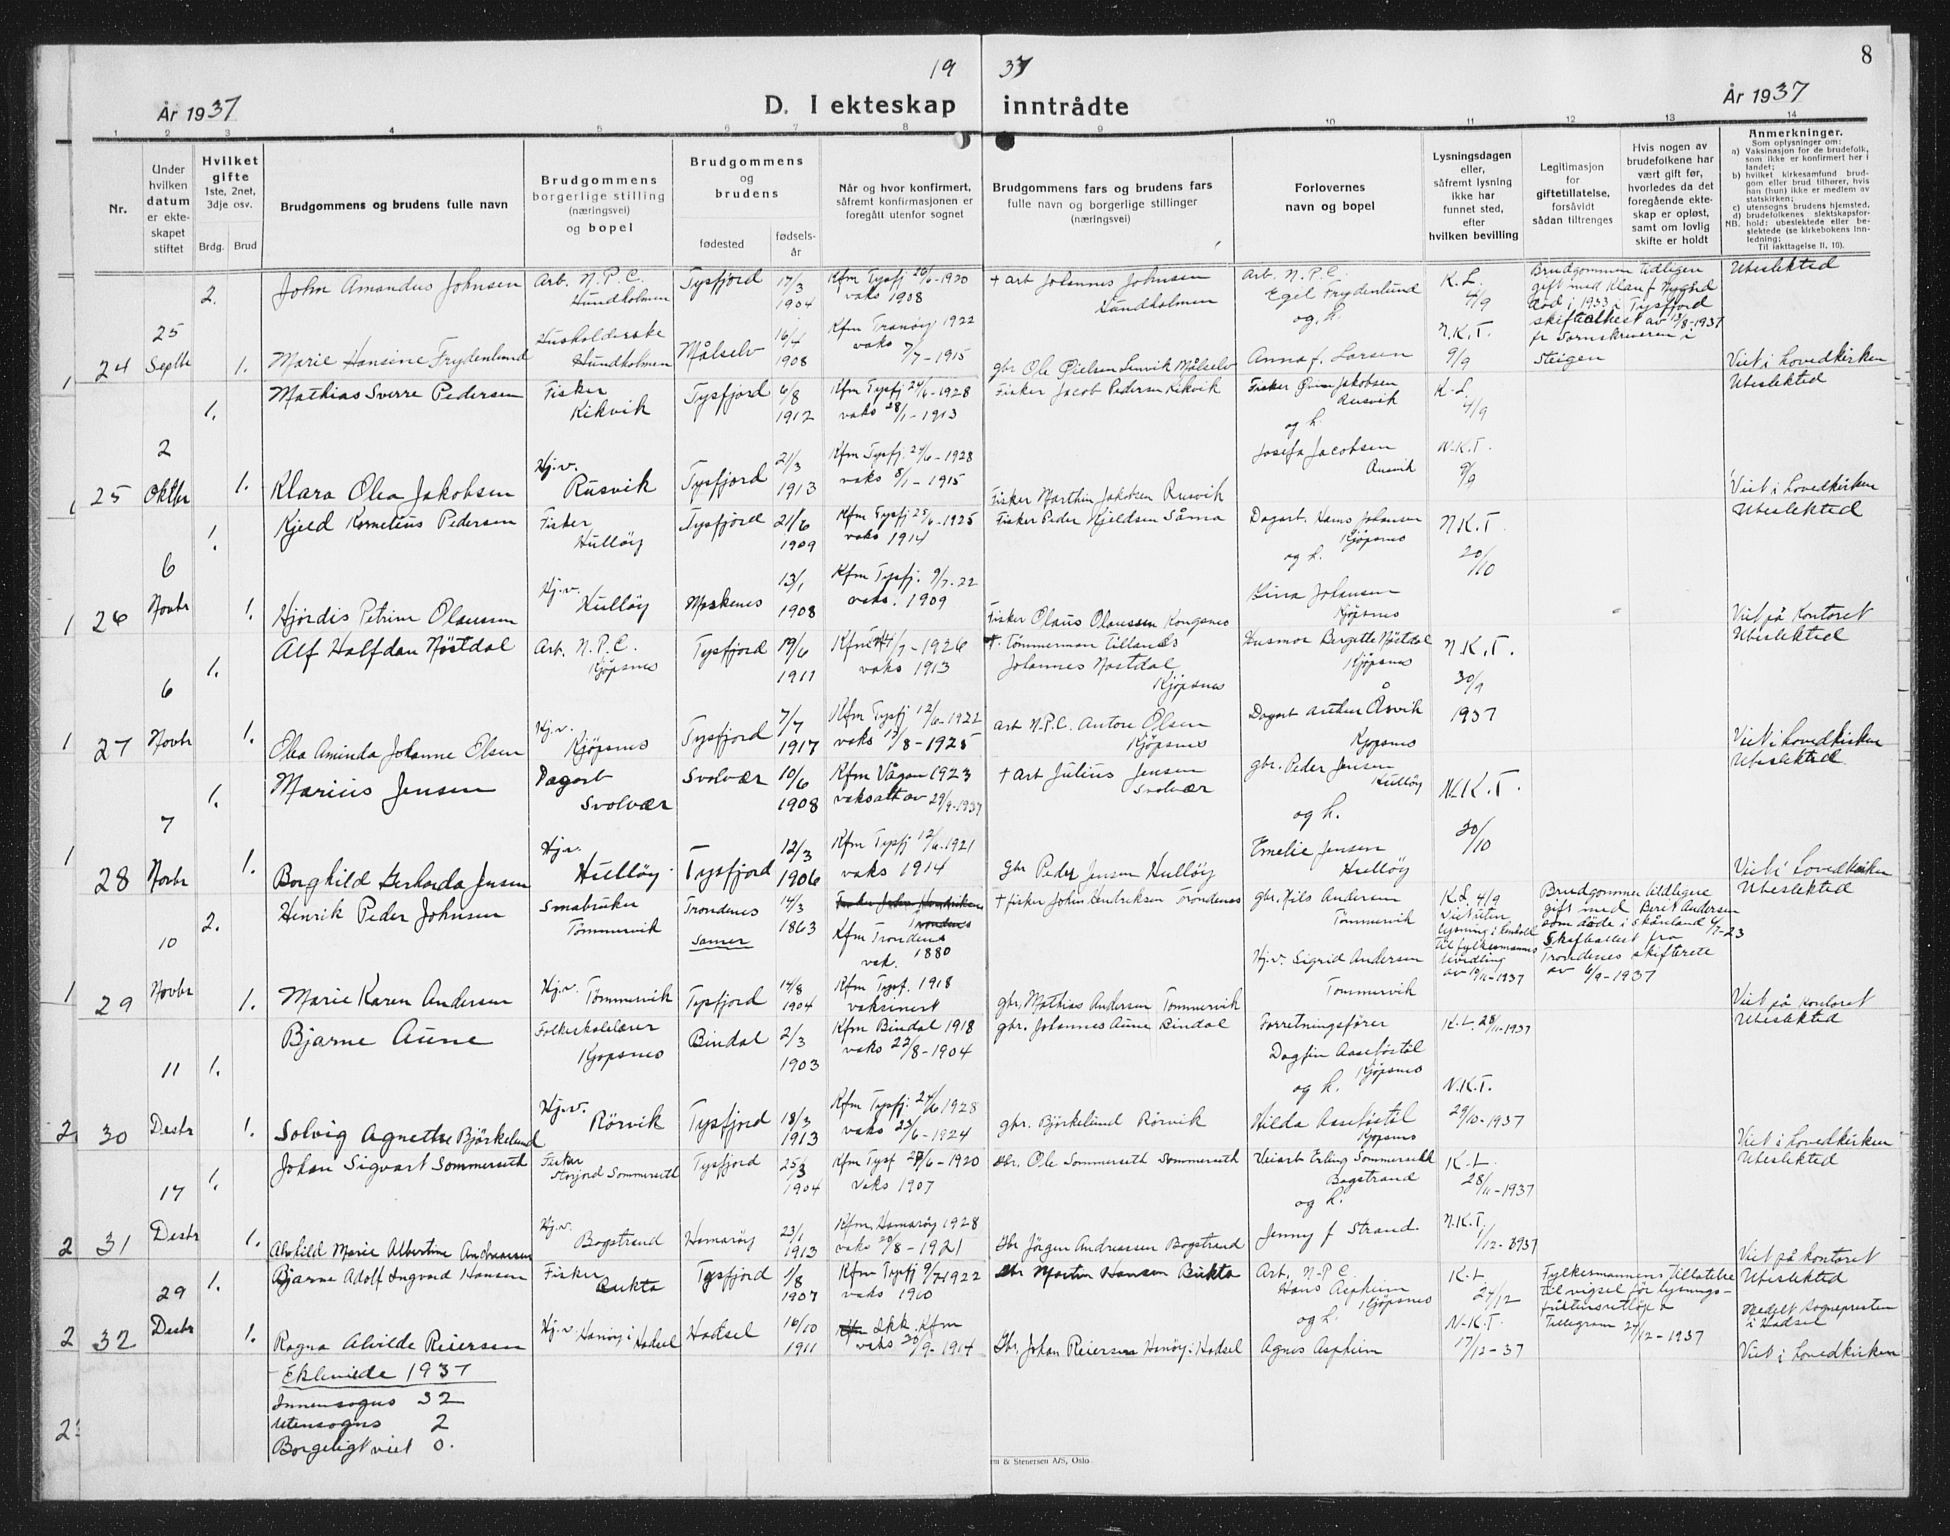 19 37
8
År 1937
D. I ekteskap inntrådte
År 1937
1 2 3 4 5 6 7 8 9 10 11 12 13 14
Nr.
Under hvilken datum er ekteskapet stiftet
Hvilket gifte 1ste, 2net, 3dje osv.
Brdg. Brud
Brudgommens og brudens fulle navn
Brudgommens borgerlige stilling (næringsvei) og bopel
Brudgommens og brudens
fødested
fødselsår
Når og hvor konfirmert, såfremt konfirmasjonen er foregått utenfor sognet
Brudgommens fars og brudens fars fulle navn og borgerlige stillinger (næringsvei)
Forlovernes navn og bopel
Lysningsdagen eller, såfremt lysning ikke har funnet sted, efter hvilken bevilling
Legitimasjon for giftetillatelse, forsåvidt sådan tiltrenges
Hvis nogen av brudefolkene har vært gift før, hvorledes da det foregående ekteskap er opløst, samt om lovlig skifte er holdt
Anmerkninger.
Som oplysninger om:
a) Vaksinasjon for de brudefolk, som ikke er konfirmert her i landet;
b) hvilket kirkesamfund brudgom eller brud tilhører, hvis han (hun) ikke er medlem av statskirken;
c) utensogns brudens hjemsted.
d) brudefolkenes slektskapsforhold: ubeslektede eller beslektede (se kirkebokens Innledning;
NB. Til iakttagelse II, 10).
2. John Amandus Johnsen Arb. N.P.C. Hundholmen Tysfjord 17/3 1904 Kfm Tysfj 20/6-1920 vaks 1908 + arb Johannes Johnsen Hundholmen Arb. N.P.C. Egil Frydenlund og h. K.L. 4/9 Brudgommen tidligere gift med Klara f. Nygård død i 1933 i Tysfjord skifteattest av 13/8-1937 fr Sorenskriveren i Steigen Ubeslektet
24 25 Septbr 1. Marie Hansine Frydenlund Husholderske Hundholmen Målselv 16/4 1908 Kfm Tranøy 1922 vaks 7/7-1915 gbr Ole Øielsen Lenvik Målselv Anna f. Larsen N.K.T. 9/9 Viet i hovedkirken
1. Mathias Sverre Pedersen Fisker Kikvik Tysfjord 6/8 1912 Kfm Tysfj 24/6-1928 vaks 28/1-1913 Fisker Jacob Pedersen Kikvik Fisker Jakobsen Rusvik og h. K.L. 4/9 Ubeslekted
25 2 Oktbr 1. Klara Olea Jakobsen Hj.v. Rusvik Tysfjord 21/3 1913 Kfm Tysfj. 24/6-1928 vaks 8/1-1915 Fisker Marthin Jakobsen Rusvik Josefa Jacobsen Rusvik N.K.T. 9/9 Viet i hovedkirken
1. Kjeld Kornelius Pedersen Fisker Hulløy Tysfjord 21/6 1909 Kfm Tysfj 25/6-1925 vaks 1914 Fisker Peder Kjeldsen Såma Dagarb. Hans Johansen Kjøpsnes og h. N.K.T. 20/10 Ubeslekted
26 6 Novbr 1. Hjørdis Petrine Olaussen Hj.v. Hulløy Moskenes 13/1 1908 Kfm Tysfj. 9/7-22 vaks. 1909 Fisker Olaus Olaussen Kongsnes Lina Johansen Kjøpsnes Viet på Kontoret
1. Alf Halfdan Nöstdal Arb. N.P.C. Kjøpsnes Tysfjord 19/6 1911 vaks 1913 + Tömmerman Johannes Nöstdal Kjøpsnes Husmor Bergitte Nöstdal Kjøpsnes N.K.T. 30/9 1937 Ubeslekted
27 6 Novbr 1. Olea Aminda Johanne Olsen Hj.v. Kjøpsnes Tysfjord 7/7 1917 vaks 13/8-1925 arb N.P.C. Anton Olsen Kjøpsnes Dagarb Kjøpsnes Viet i hovedkirken
1. Marius Jensen Dagarb Svolvær Svolvær 10/6 1908 Kfm Vågan 1923 vaksatt av 29/9-1937 + Arb Julius Jensen Svolvær gbr. Peder Jensen Hulløy og h. N.K.T. 30/10 Ubeslekted
28 7 Novbr 1. Borghild Gerharda Jensen Hj.v. Hulløy Tysfjord 12/3 1906 Kfm Tysfj 12/6-1921 vaks 1914 Gbr Peder Jensen Hulløy Emelie Jensen Hulløy Viet i Hovedkirken
2. Henrik Peder Johnsen Småbruker Tömmervik Trondenes Samer 14/3 1863 Kfm Trondenes vak. 1880 + fisker John Henriksen Trondenes gbr. Nils Andersen Tömmervik K.L. 4/9 Viet uten lysning i henhold til fylkesmannens bevilling av 10/11-1937 Brudgommen tidligere gift med Berit Andersen som døde i Skånland 4/7-23 Skifteattest fra Trondenes skifterett av 6/9-1937 Ubeslekted
29 10 Novbr 1. Marie Karen Andersen Hj.v. Tömmervik Tysfjord 14/8 1904 Kfm Tysf. 1918 vaksinert gbr. Mathias Andersen Tömmervik Hj.v. Sigrid Andersen Tömmervik Viet på Kontoret
1. Bjarne Aune Folkeskolelærer Kjøpsnes Bindal 2/3 1903 Kfm Bindal 1918 vaks 22/8-1904 gbr. Johannes Aune Bindal Forretningsfører Dagfin Aasebøstöl Kjøpsnes og h. K.L. 28/11-1937 Ubeslekted
30 11 Desbr 1. Solvig Agnethe Björkelund Hj.v. Rörvik Tysfjord 18/3 1913 Kfm Tysfj. 24/6 1928 vaks 23/6-1924 gbr. Björkelund Rörvik Hilda Aasebøstöl Kjøpsnes N.K.T. 29/10-1937 Viet i hovedkirken
1. Johan Sigvart Sommerseth Fisker Storjord Sommerseth Tysfjord 25/3 1904 Kfm Tysf 27/6-1920 vaks 1907 Gbr. Ole Sommerseth Sommerseth Veiarb Erling Sommerseth Bogstrand og h. K.L. 28/11-1937 Ubeslekted
31 17 Desbr 1. Alvhild Marie Albertine Andreassen Hj.v. Bogstrand Hamarøy 23/1 1913 Kfm. Hamarøy 1928 vaks 20/8-1921 Gbr Jørgen Andreassen Bogstrand Jenny f Strand. N.K.T. 1/12-1937 Viet på Kontoret
1. Bjarne Adolf Ingvard Hansen Fisker Bukta Tysfjord 1/8 1907 Kfm Tysfj 9/7-1922 vaks 1910 Gbr Martin Hansen Bukta Arb. N.P.C. Hans Aspheim Kjøpsnes og h. K.L. 24/12 Fylkesmannens tillatelse til vigsel før lysningsfristens utløp Telegram 24/12-1937 Ubeslekted
32 29 Desbr 1. Ragna Alvilde Reiersen Hj.v. Hanøy i Hadsel Hadsel 16/10 1911 Ikk. Kfm vaks 20/9-1914 Gbr. Johan Reiersen Hanøy i Hadsel Agnes Aspheim N.K.T. 17/12-37 Medelt Sognepresten i Hadsel Viet i hovedkirken
Ekteviede 1937
Innensogns 32
Utensogns 2
Borgeligt viet 0.
& Stenersen A/S, Oslo